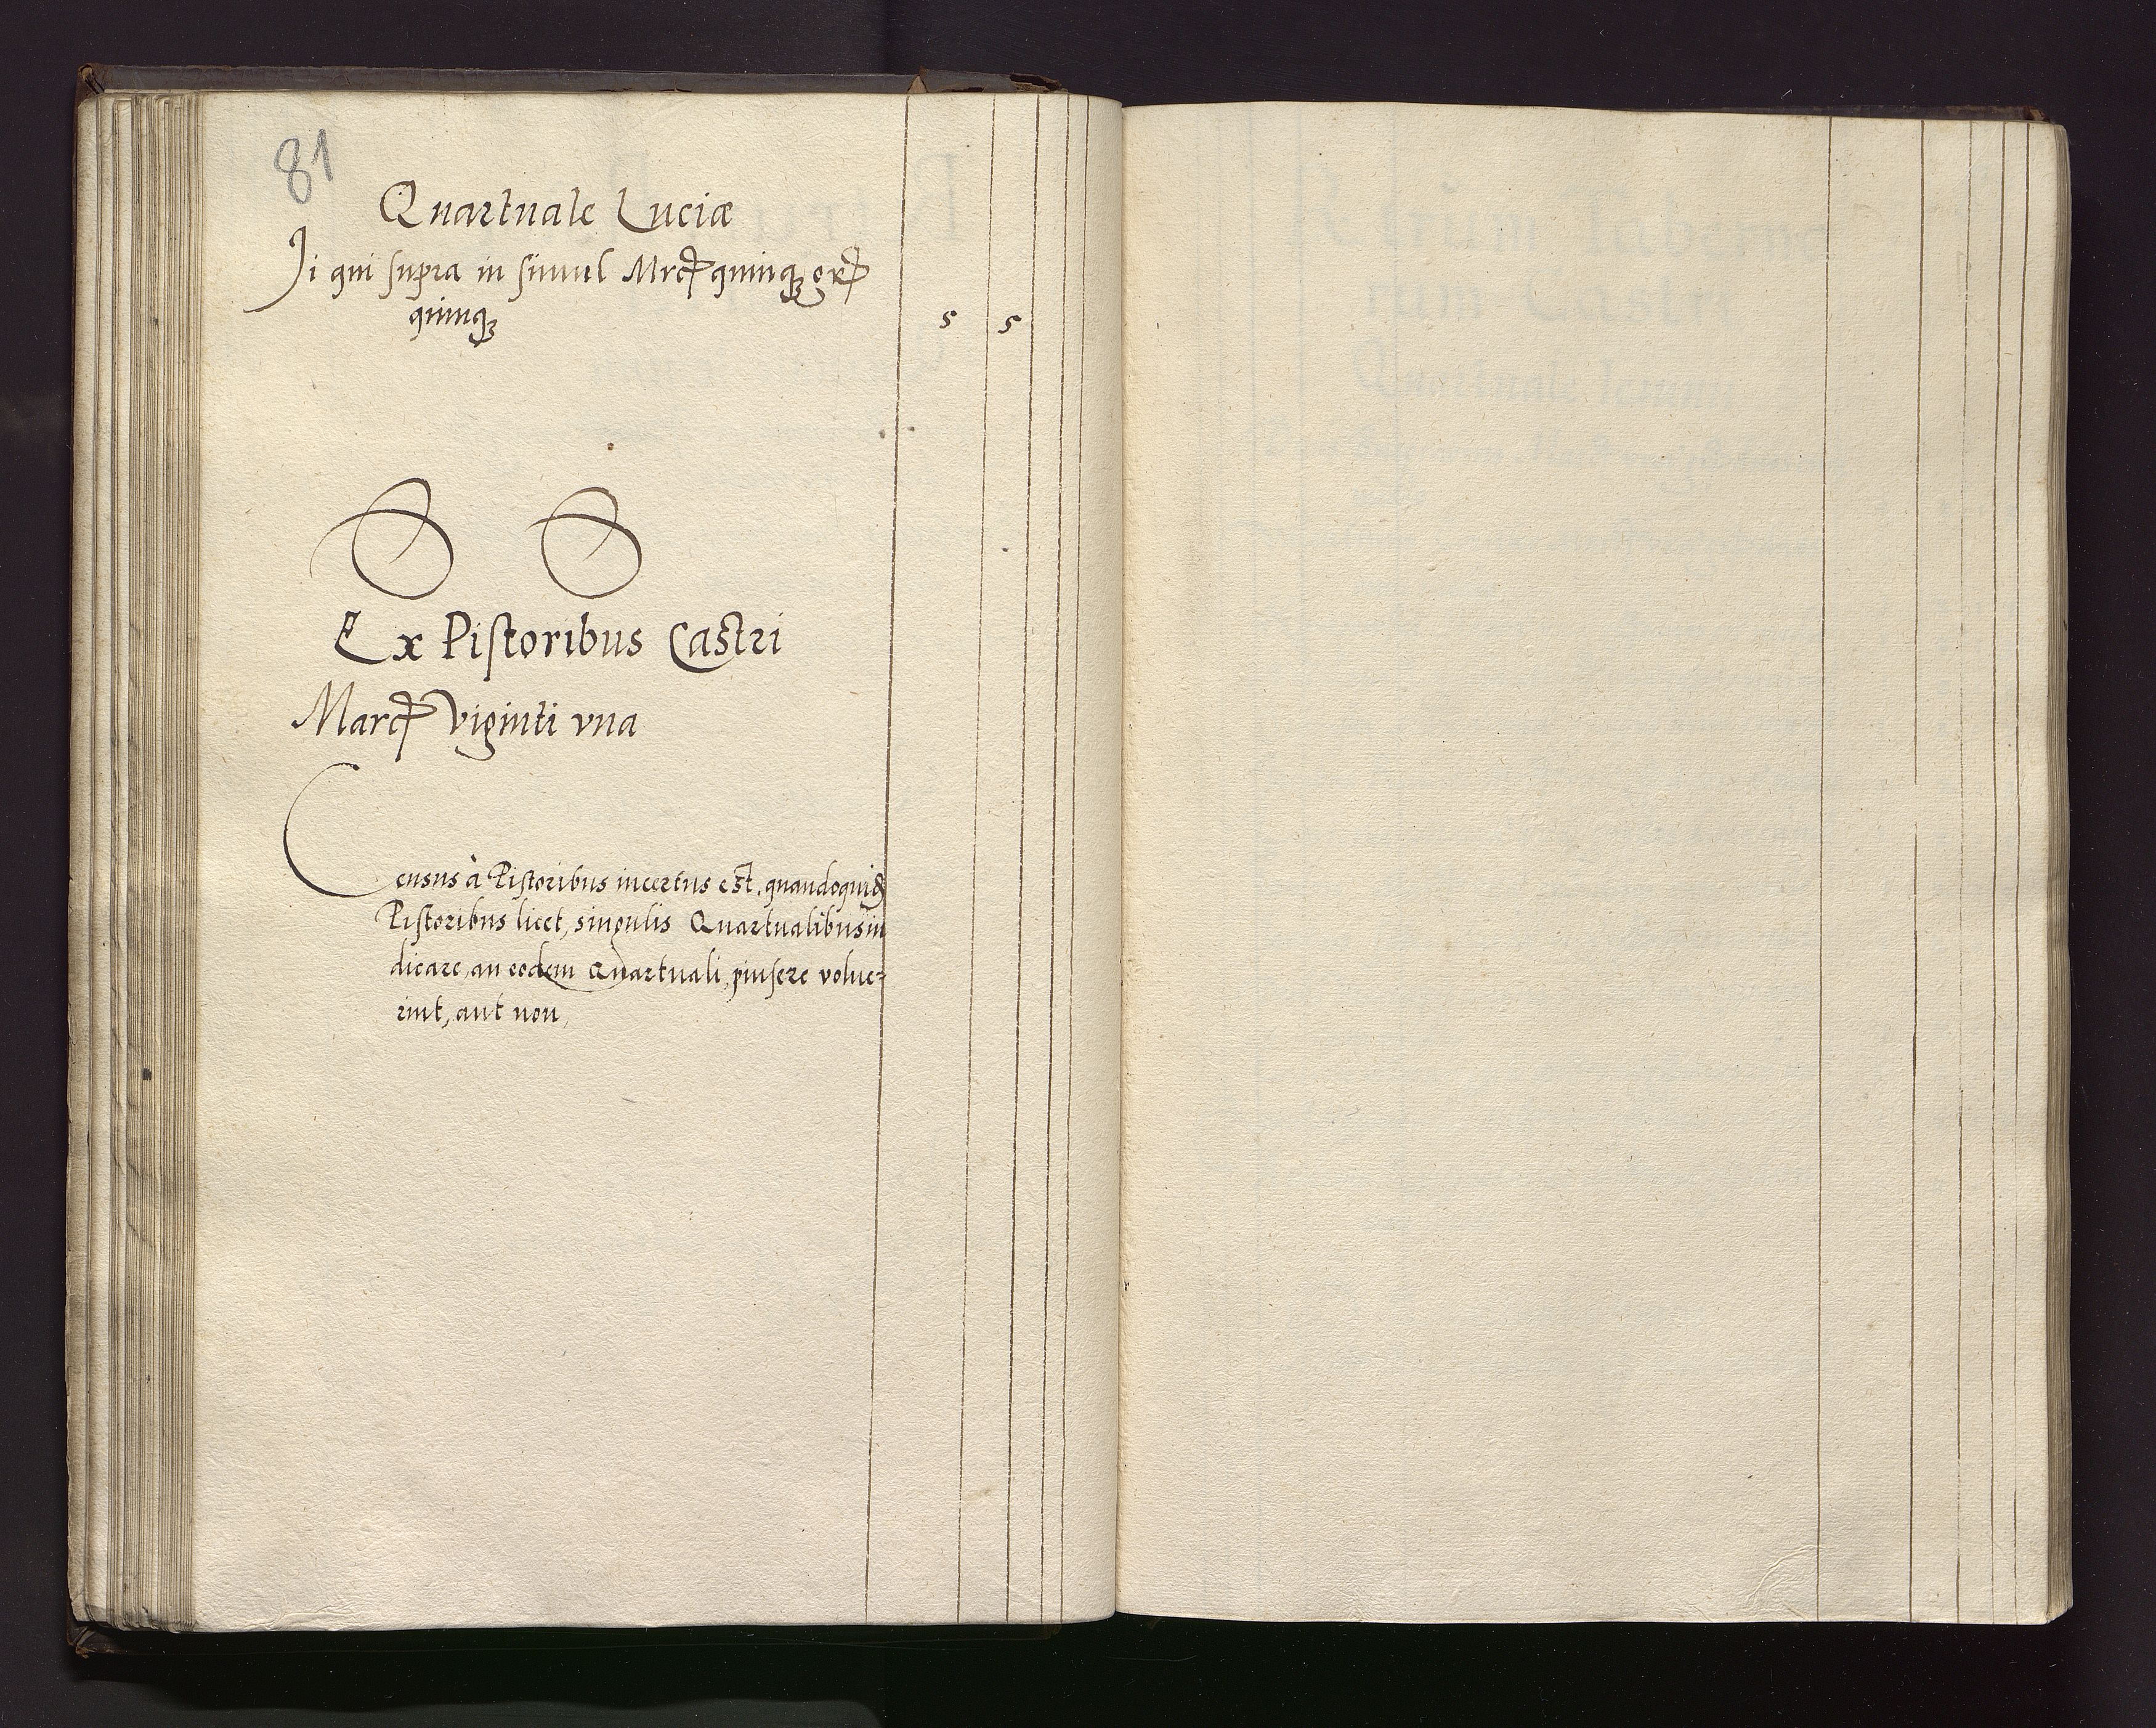 81
Quartuale Luciæ
Ii qui supra in simul Mrcꝭ quinqꝫ grꝭ
quinqꝫ 5 5
Ex Pistoribus Castri
Marcꝭ Viginti vna
Census à Pistoribus incertus est, quandoquidē
Pistoribus licet, singulis Quartualibus in
dicare, an eodem Quartuali, pinsere volue=
rint, aut non,